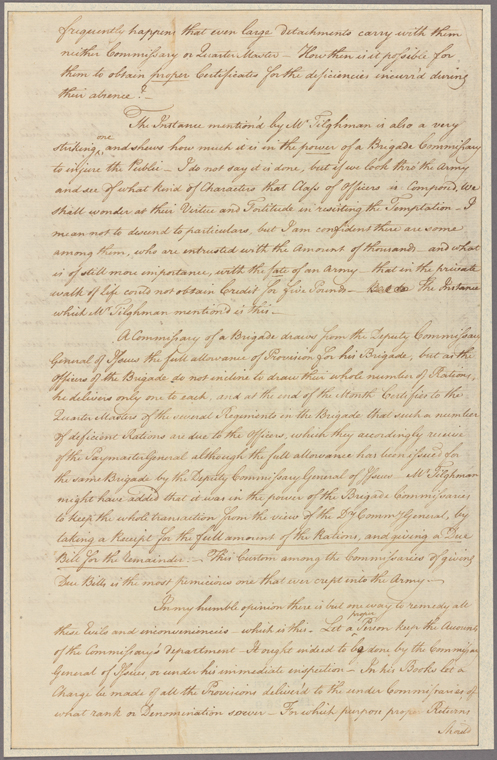 frequently happens that even large Detachments carry with them
neither Commissary or Quarter Master – How then is it possible for
them to obtain proper Certificates for the deficiencies incurr'd during
their absence? –
The Instance mention'd by Mr Tilghman is also a very
striking one, and shews how much it is in the power of a Brigade Commissary
to injure the Public – I do not say it is done, but if we look thro' the Army
and see of what kind of Characters that Class of Officers is Compos'd, We
shall wonder at their Virtue and Fortitude in resisting the Temptation – I
mean not to descend to particulars, but I am confident there are some
among them, who are entrusted with the Amount of thousands and what
is of still more importance, with the fate of an Army – that in the private
walk of life could not obtain Credit for five Pounds – the Instance
which Mr Tilghman mentions is this –
A Commissary of a Brigade draws from the Deputy Commissary
General of Issues the full allowance of Provision for his Brigade, but as the
Officers of the Brigade do not incline to draw their whole number of Rations,
he delivers only one to each, and at the end of the Month Certifies to the
Quarter Masters of the several Regiments in the Brigade that such a number
of deficient Rations are due to the Officers, which they accordingly receive
of the Paymaster General although the full allowance has been issued for
the same Brigade by the Deputy Commissary General of Issues – Mr Tilghman
might have added that it was in the power of the Brigade Commissaries
to keep the whole transaction from the view of the Dy Commy General, by
taking a Receipt for the full amount of the Rations, and giving a Due
Bill for the Remainder. – This Custom among the Commissaries of giving
Due Bills is the most pernicious one that ever crept into the Army –
In my humble opinion there is but one way to remedy all
these Evils and inconveniencies – which is this – Let a proper Person keep the Accounts
of the Commissary's Department – It ought indeed to be done by the Commissary
General of Issues or under his immediate inspection – In his Books let a
Charge be made of all the Provisions deliver'd to the under Commissaries of
what rank or Denomination soever – For which purpose proper Returns
should